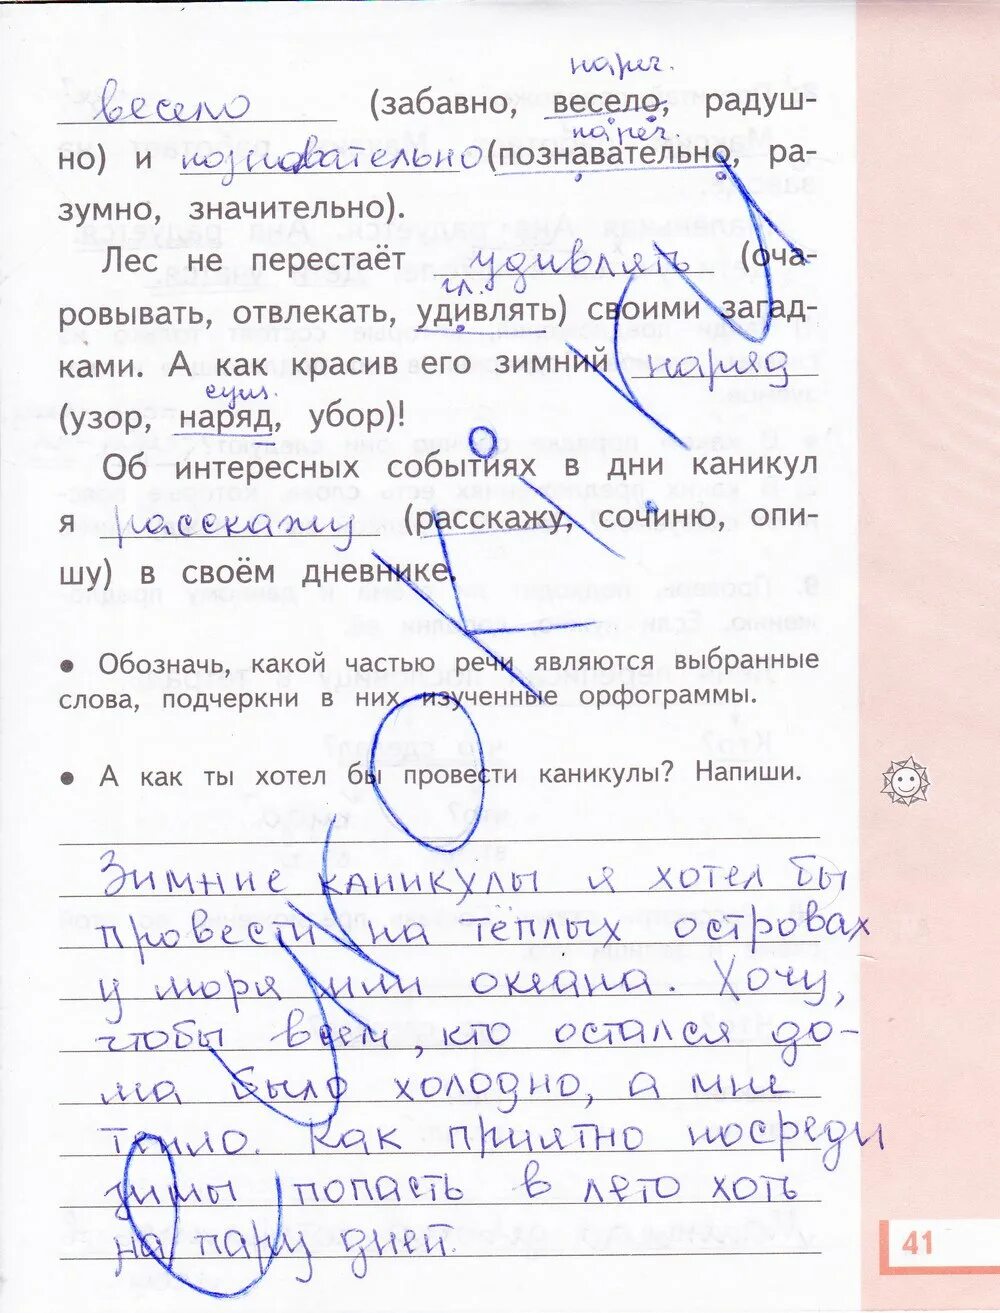 нареч.
весело (забавно, весело, радуш-
нареч
но) и познавательно (познавательно, ра-
зумно, значительно).
Лес не перестаёт удивлять (оча-
гл.
ровывать, отвлекать, удивлять) своими загад-
ками. А как красив его зимний наряд
сущ.
(узор, наряд, убор)!
Об интересных событиях в дни каникул
я расскажу (расскажу, сочиню, опи-
шу) в своём дневнике.
• Обозначь, какой частью речи являются выбранные
слова, подчеркни в них изученные орфограммы.
• А как ты хотел бы провести каникулы? Напиши.
Зимние каникулы я хотел бы
провести на тёплых островах
у моря или океана. Хочу,
чтобы всем, кто остался до-
ма было холодно, а мне
тепло. Как приятно посреди
зимы попасть в лето хоть
на пару дней.
41